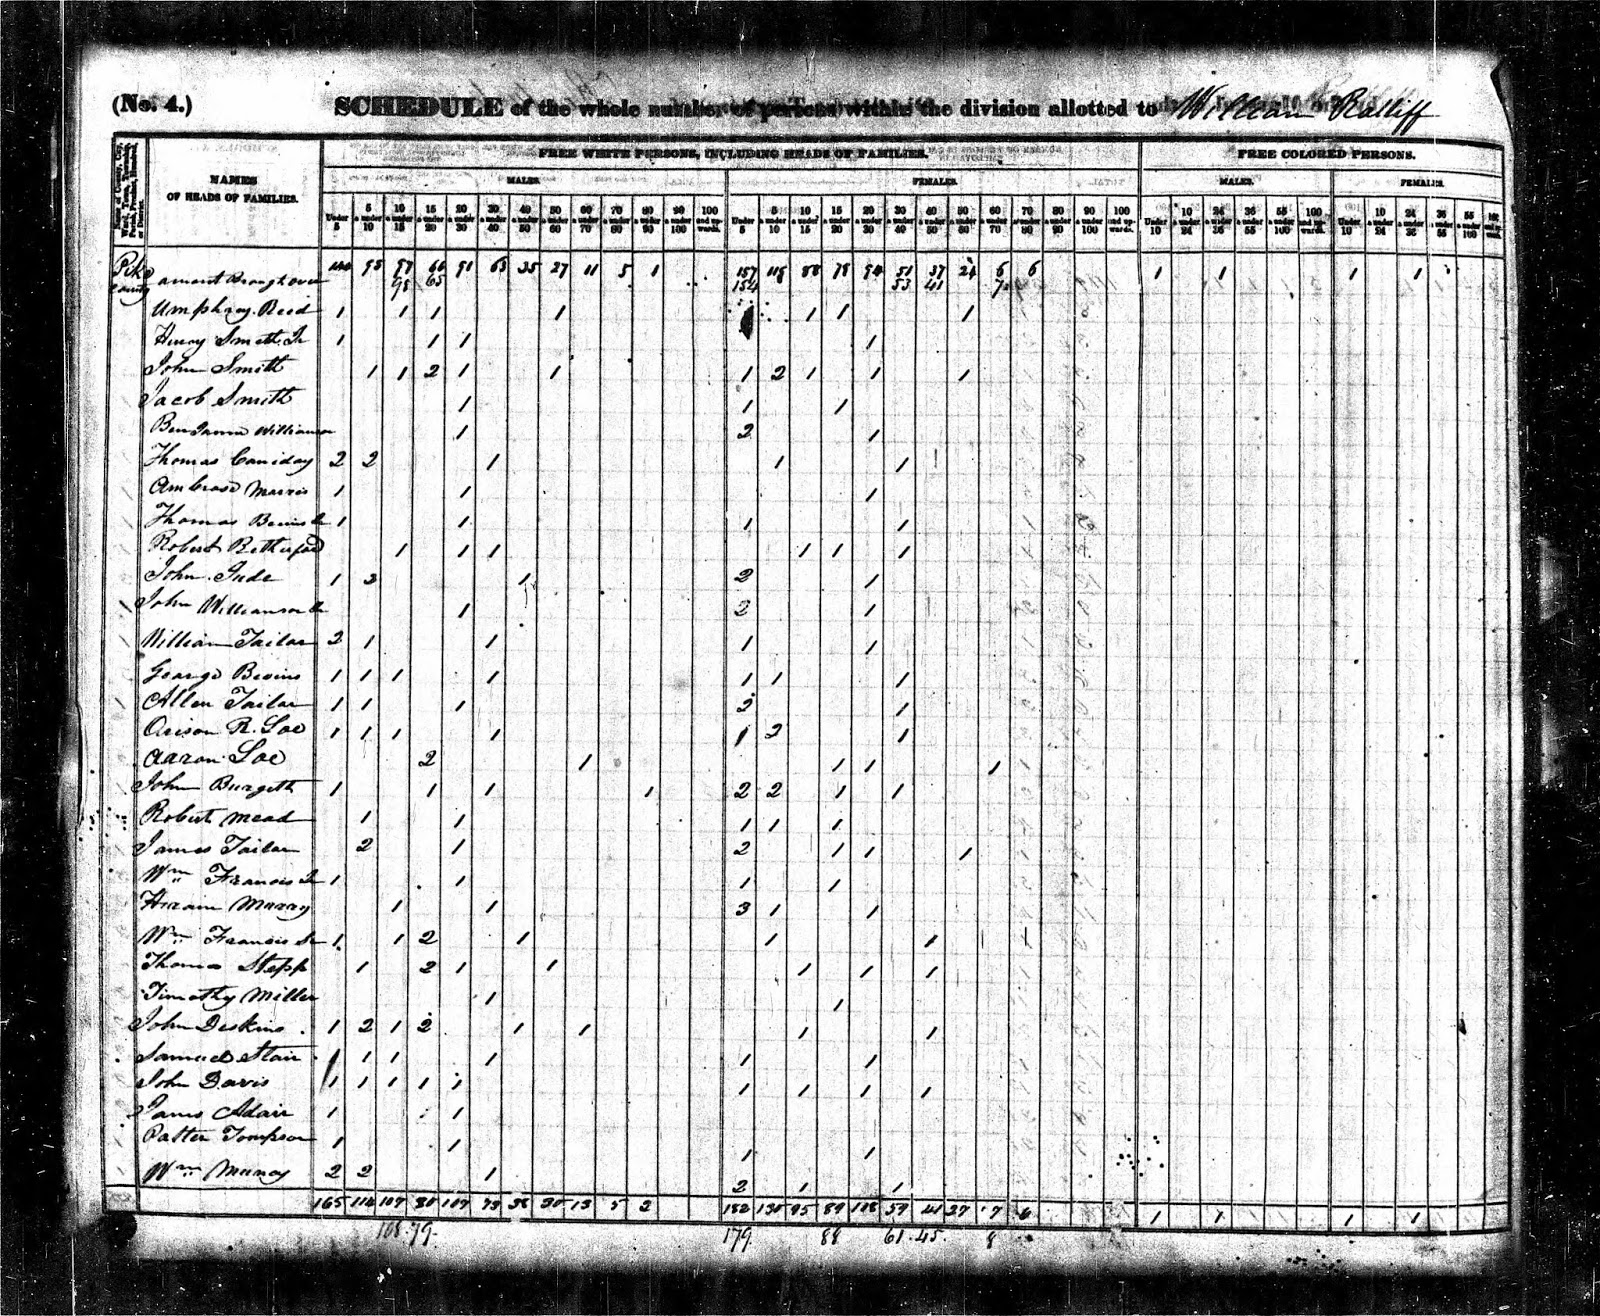 (No. 4.) SCHEDULE of the whole number of persons within the division allotted to William Ratliff
FREE WHITE PERSONS, INCLUDING HEADS OF FAMILIES. FREE COLORED PERSONS.
NAMES OF HEADS OF FAMILIES. MALES. FEMALES. MALES. FEMALES.
Under 5 5 & under 10 10 & under 15 15 & under 20 20 & under 30 30 & under 40 40 & under 50 50 & under 60 60 & under 70 70 & under 80 80 & under 90 90 & under 100 100 and upwards. Under 5 5 & under 10 10 & under 15 15 & under 20 20 & under 30 30 & under 40 40 & under 50 50 & under 60 60 & under 70 70 & under 80 80 & under 90 90 & under 100 100 and upwards. Under 10 10 & under 24 24 & under 36 36 & under 55 55 & under 100 100 and upwards. Under 10 10 & under 24 24 & under 36 36 & under 55 55 & under 100
Pike County amount Brought over 95 97 66 91 63 35 27 11 5 1 157 118 88 78 94 51 37 24 6 6 1 1 1 1
98 65 154 53 41 7
Umphrey Reed 1 1 1 1 1 1 1
Henry Smith Jr 1 1 1 1
John Smith 1 1 2 1 1 1 2 1 1 1
Jacob Smith 1 1 1
Benjamin Williamson 1 2 1
Thomas Caniday 2 2 1 1 1
Ambrose Marris 1 1 1
Thomas Bevins 1 1 1 1
Robert Retherford 1 1 1 1 1 1
John Jude 1 2 1 2 1
John Williamson 1 2 1
William Tailor 2 1 1 1 1
George Bevins 1 1 1 1 1 1 1
Allen Tailor 1 1 1 2 1
Orison R. Loe 1 1 1 1 1 2 1
Aaron Loe 2 1 1 1 1
John Burgett 1 1 1 1 2 2 1 1
Robert Mead 1 1 1 1 1
James Tailor 2 1 2 1 1 1
Wm Francis Jr 1 1 1 1
Hiram Murry 1 1 3 1 1
Wm Francis Sr 1 1 2 1 1 1
Thomas Stepp 1 2 1 1 1 1 1
Timothy Miller 1 1
John Deskins 1 2 1 2 1 1 1 1
Samuel Stair 1 1 1 1 1 1
John Davis 1 1 1 1 1 1 1 1 1
James Adair 1 1
Patter Tompson 1 1 1 1
Wm Muncy 2 2 1 2 1 1
165 114 107 80 107 73 38 30 13 5 2 182 130 95 89 108 59 41 27 7 6 1 1 1 1
108 79 179 88 61 45 8